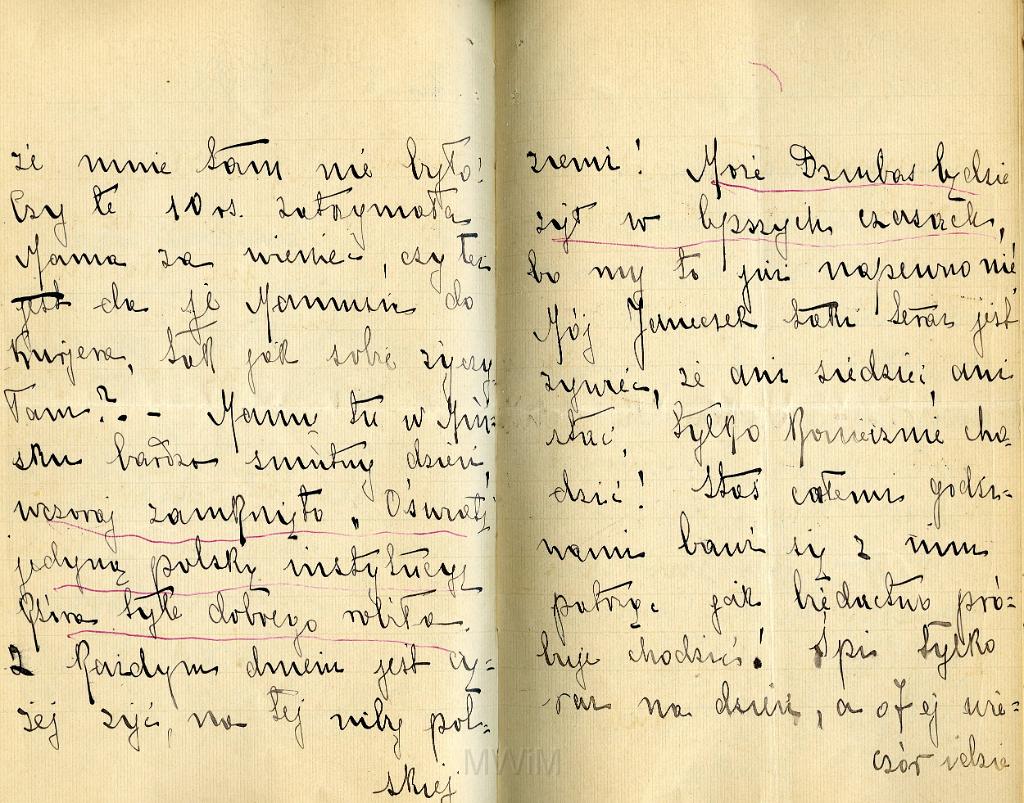 że mnie tam nie było!
Czy te 10 rs. zatrzymała
Mama za wieniec, czy też
jest da je Mamusia do
Kurjera, tak jak sobie życzy
Tam? - Mamy tu w Miń-
sku bardzo smutny dzień,
wczoraj zamknięto „Oświatę"
jedyną polską instytucyę
która tyle dobrego robiła.
Z każdym dniem jest cię-
żej żyć, na tej niby pol-
skiej
ziemi! Może Dziubas będzie
żył w lepszych czasach,
bo my to już napewno nie.
Mój Janeczek taki teraz jest
żywiec, że ani siedzieć, ani
stać, tylko koniecznie cho-
dzić! Staś całemi godzi-
nami bawi się z nim
patrząc jak biedactwo pró-
buje chodzić! Śpi tylko
raz na dzień, a o 7ej wie-
czór idzie
MWiM